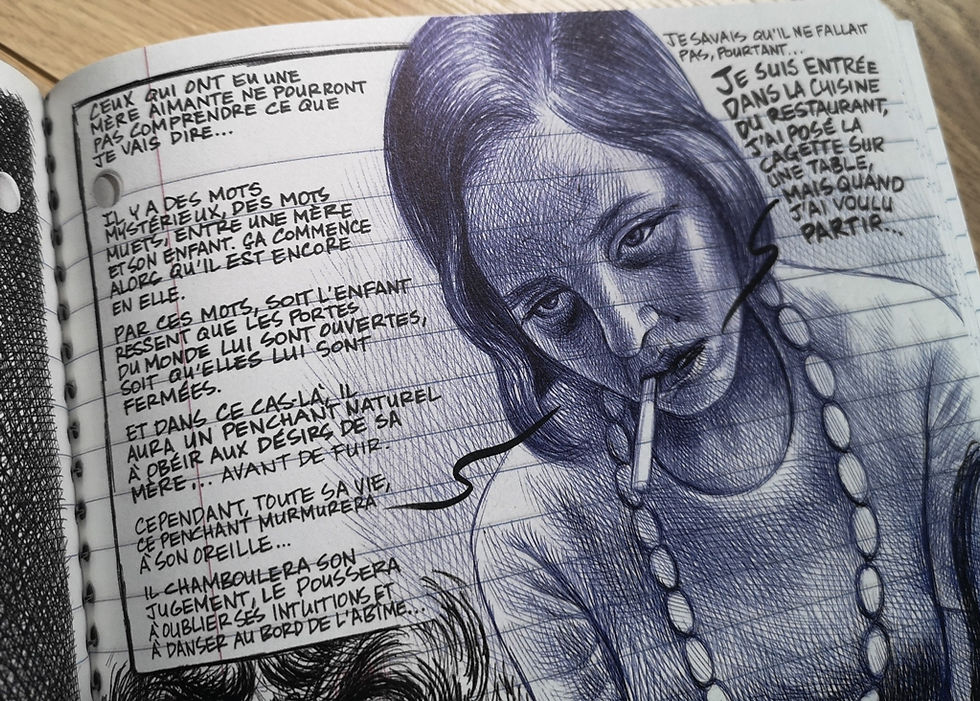 CEUX QUI ONT EU UNE
MÈRE AIMANTE NE POURRONT
PAS COMPRENDRE CE QUE
JE VAIS DIRE...
IL Y A DES MOTS
MYSTÉRIEUX, DES MOTS
MUETS, ENTRE UNE MÈRE
ET SON ENFANT. ÇA COMMENCE
ALORS QU'IL EST ENCORE
EN ELLE.
PAR CES MOTS, SOIT L'ENFANT
RESSENT QUE LES PORTES
DU MONDE LUI SONT OUVERTES,
SOIT QU'ELLES LUI SONT
FERMÉES.
ET DANS CE CAS-LÀ, IL
AURA UN PENCHANT NATUREL
À OBÉIR AUX DÉSIRS DE SA
MÈRE... AVANT DE FUIR.
CEPENDANT, TOUTE SA VIE,
CE PENCHANT MURMURERA
À SON OREILLE...
IL CHAMBOULERA SON
JUGEMENT, LE POUSSERA
À OUBLIER SES INTUITIONS ET
À DANSER AU BORD DE L'ABÎME...
JE SAVAIS QU'IL NE FALLAIT
PAS, POURTANT...
JE SUIS ENTRÉE
DANS LA CUISINE
DU RESTAURANT,
J'AI POSÉ LA
CAGETTE SUR
UNE TABLE,
MAIS QUAND
J'AI VOULU
PARTIR...